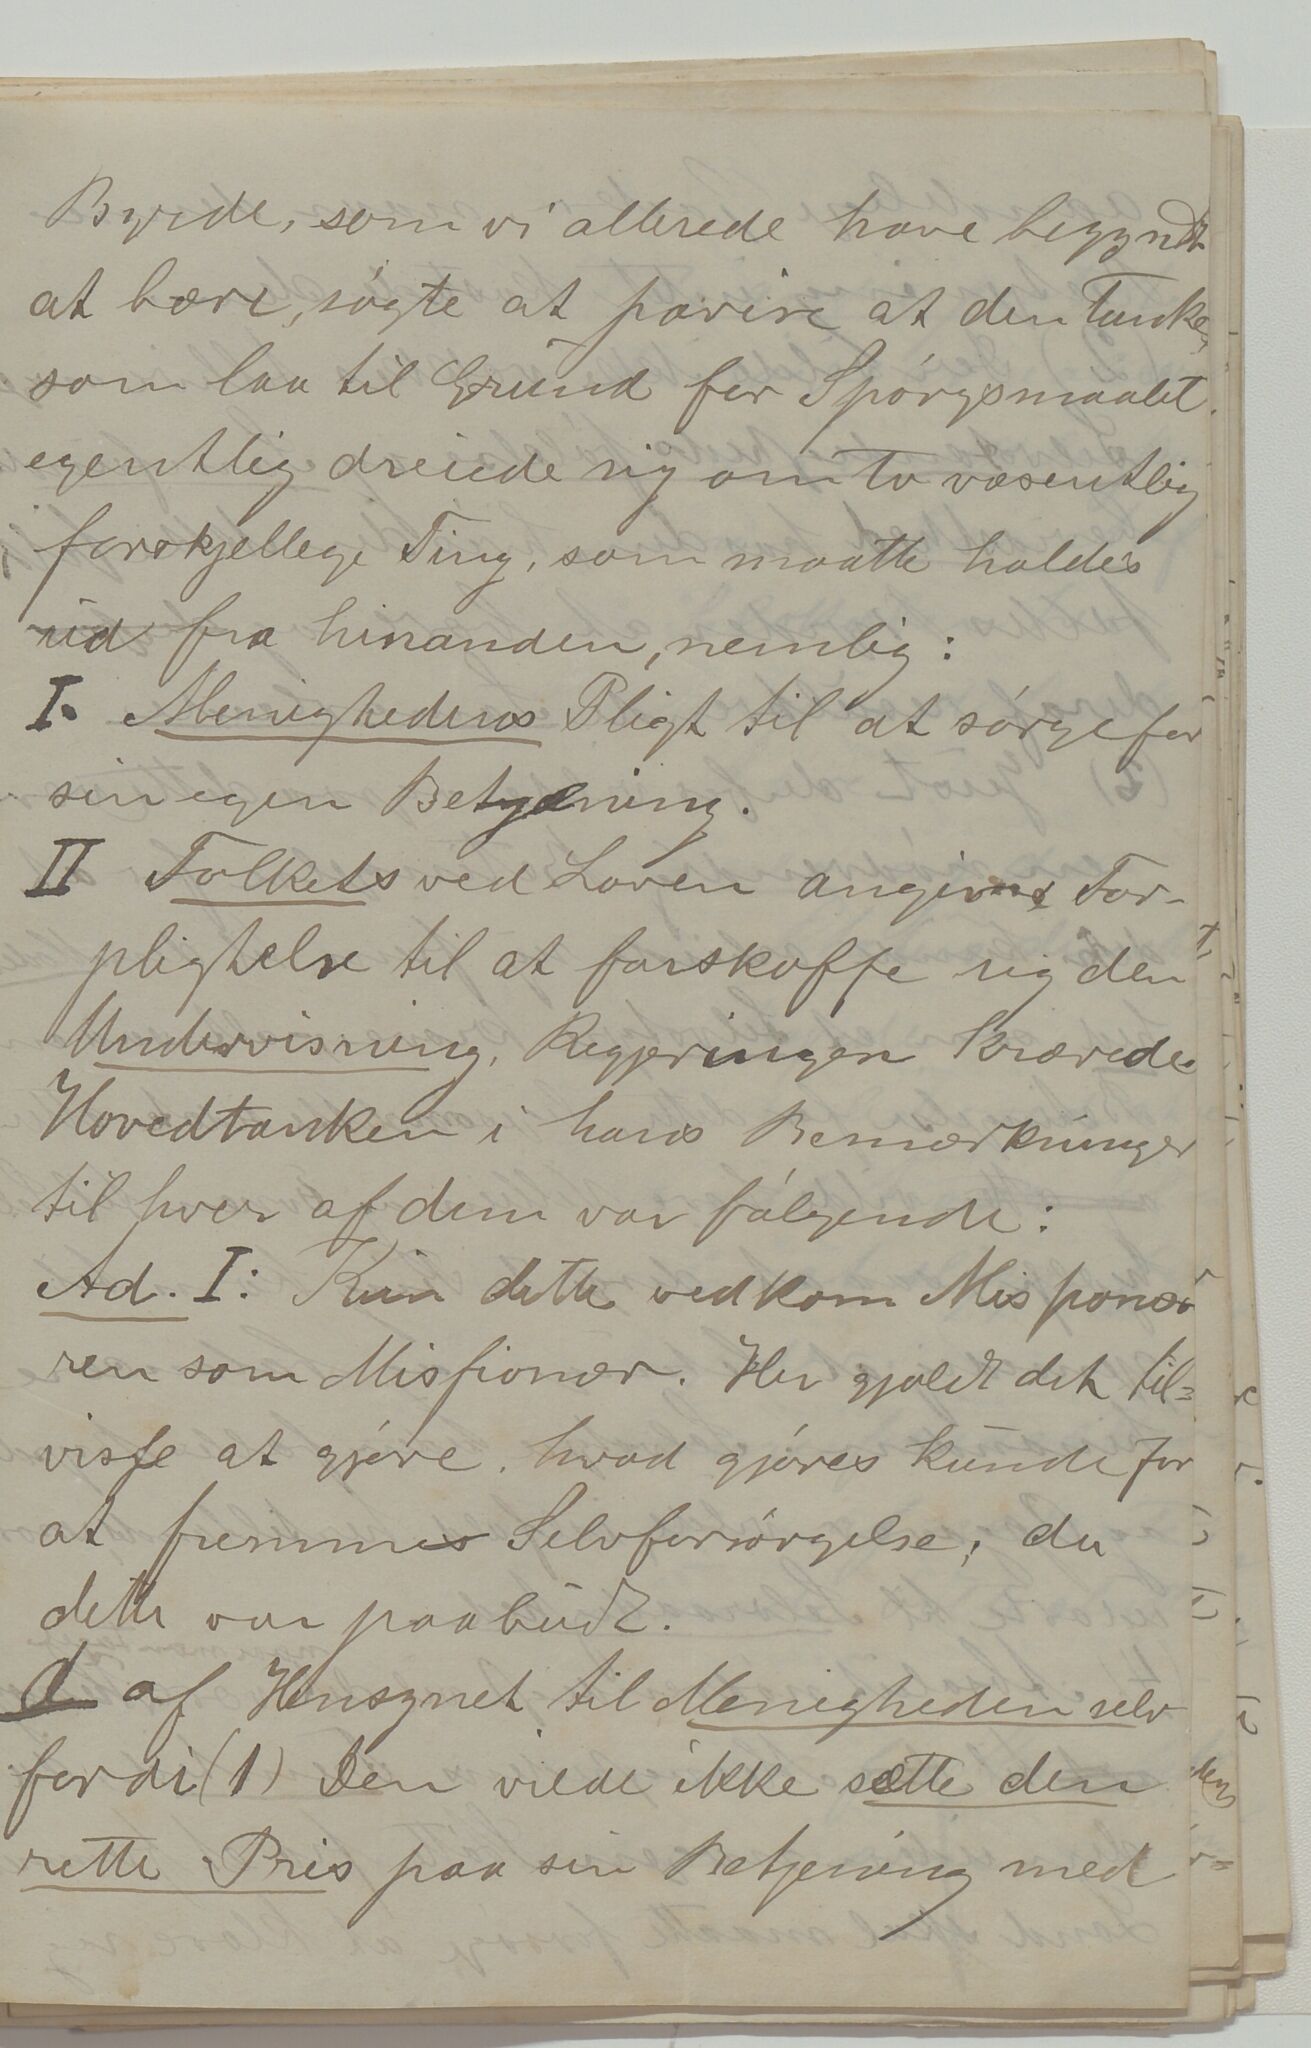 Byrde, som vi allerede have begyndt
at bære, søgte at pavise at den Tanke,
som laa til Grund for Spørgsmaalet,
egentlig dreiede sig om to væsentlig
forskjellege Ting, som maatte holdes
ud fra hinanden, nemlig:
I. Menighedens Pligt til at sørge for
sin egen Betjening.
II Folkets ved Loven angivne For-
pligtelse til at forskaffe sig den
Undervisning, Regjeringen krævede.
Hovedtanken i hans Bemærkninger
til hver af dem var følgende:
Ad. I: Kun dette vedkom Missionæ
ren som Missionær. Her gjaldt det til=
visse at gjøre, hvad gjøres kunde for
at fremme Selvforsørgelse; da
dette var paabudt.
af Hensynet til Menigheden selv
fordi (1) Den vilde ikke sætte den
rette Pris paa sin Betjening med